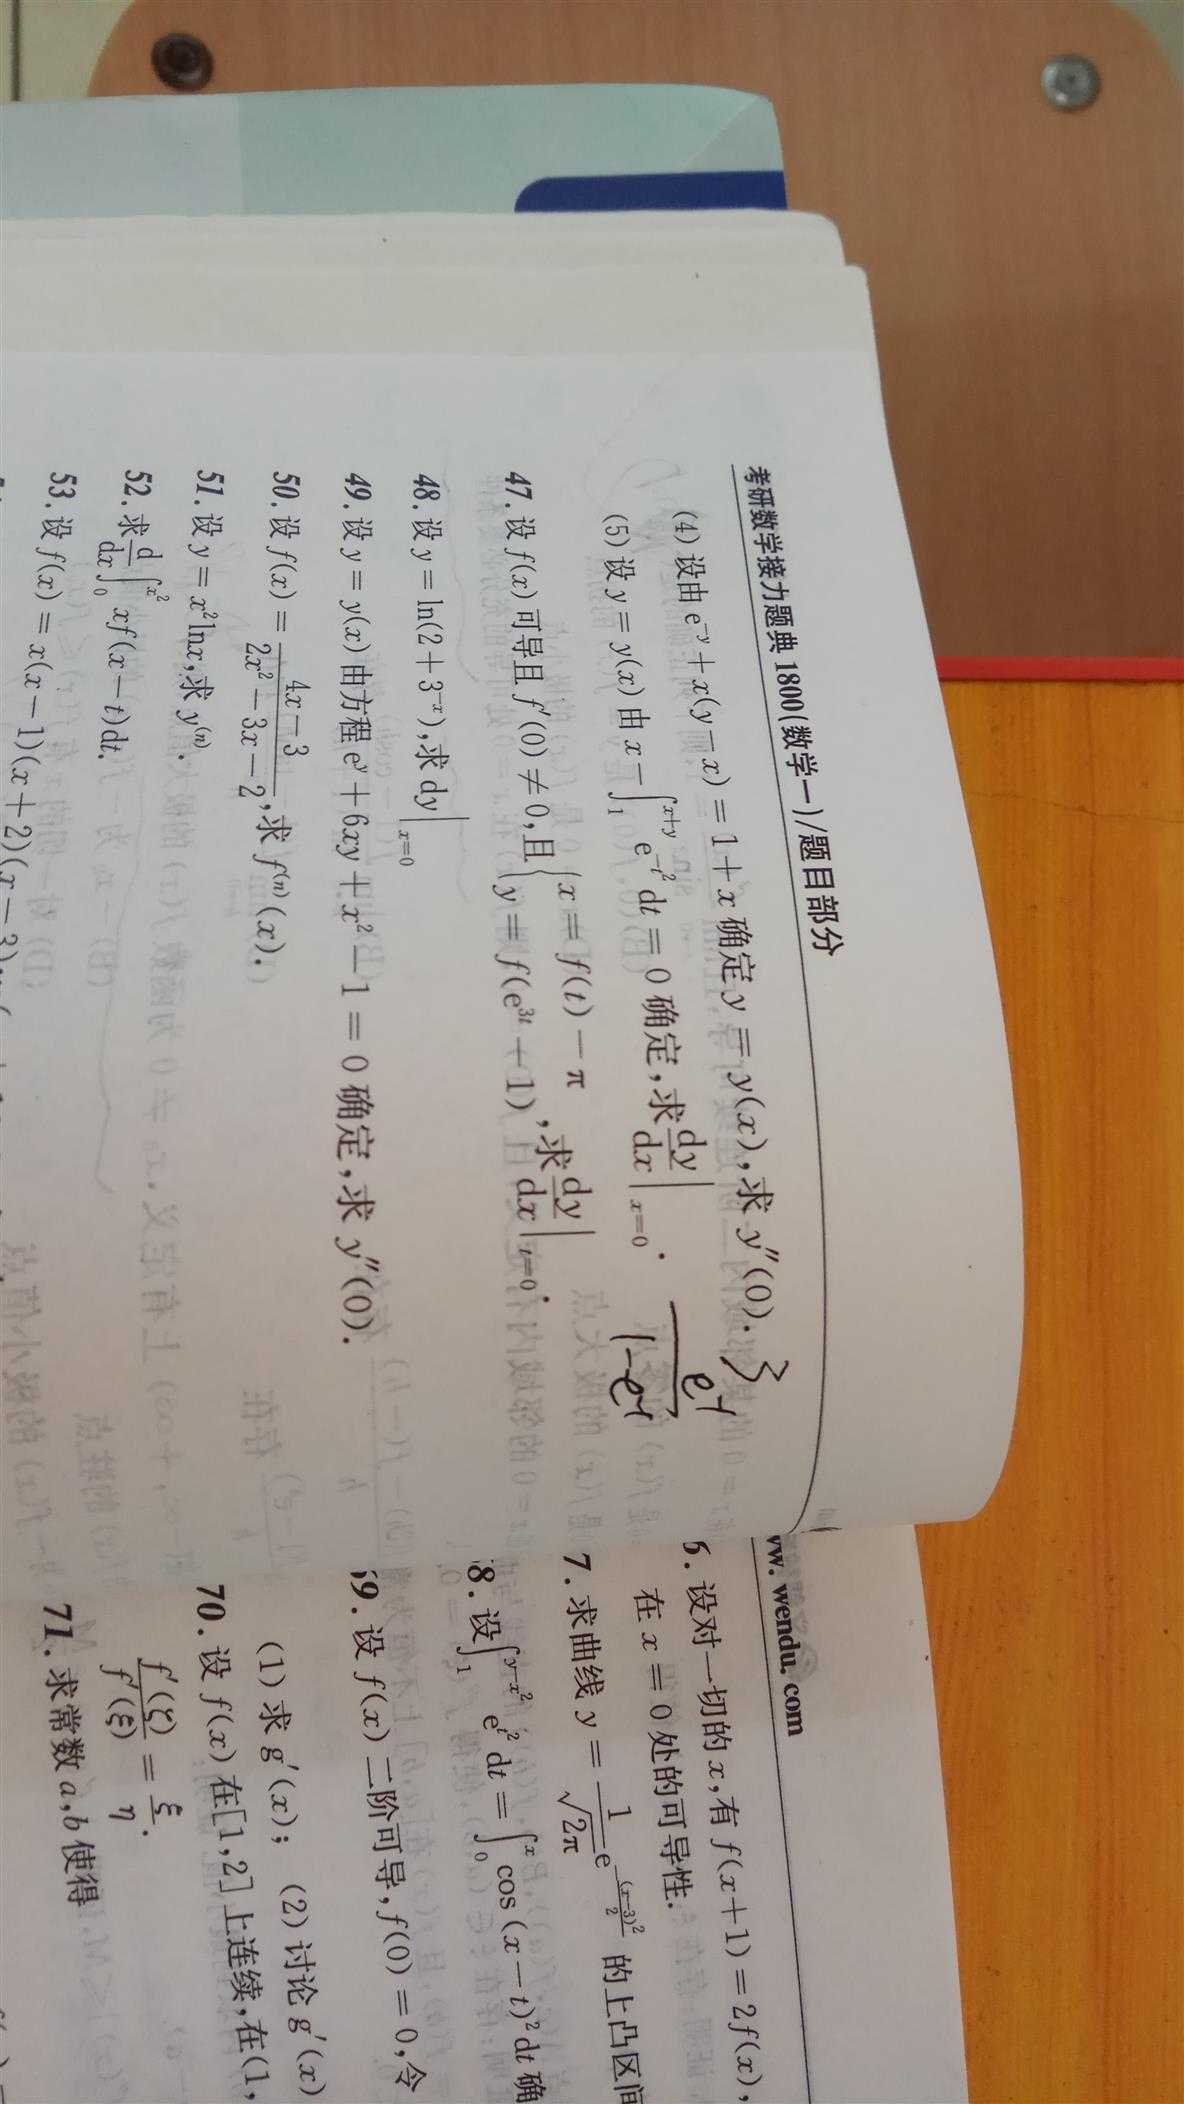 考研数学接力题典 1800(数学一)/题目部分
(4) 设由 e^{-y} + x(y − x) = 1 + x 确定 y = y(x), 求 y″(0). 3
(5) 设 y = y(x) 由 x − ∫_1^{x+y} e^{-t²} dt = 0 确定, 求 dy/dx |_{x=0}.
47. 设 f(x) 可导且 f′(0) ≠ 0, 且 { x = f(t) − π, y = f(e^{3t} − 1), 求 dy/dx |_{t=0}.
48. 设 y = ln(2 + 3^{-x}), 求 dy |_{x=0}
49. 设 y = y(x) 由方程 e^y + 6xy + x² − 1 = 0 确定, 求 y″(0).
50. 设 f(x) = (4x − 3)/(2x² − 3x − 2), 求 f^{(n)}(x).
51. 设 y = x² ln x, 求 y^{(n)}.
52. 求 d/dx ∫_0^{x²} xf(x − t)dt.
53. 设 f(x) = x(x − 1)(x + 2)(x − 3)
ww. wendu. com
6. 设对一切的 x, 有 f(x + 1) = 2f(x),
在 x = 0 处的可导性.
7. 求曲线 y = 1/√2π e^{-(x−3)²/2} 的上凸区间
8. 设 ∫_1^{y−x²} e^{t²} dt = ∫_0^x cos(x − t)² dt 确
69. 设 f(x) 二阶可导, f(0) = 0, 令
(1) 求 g′(x); (2) 讨论 g′(x)
70. 设 f(x) 在 [1, 2] 上连续, 在 (1,
f′(ζ)/f′(ξ) = ξ/η.
71. 求常数 a, b 使得